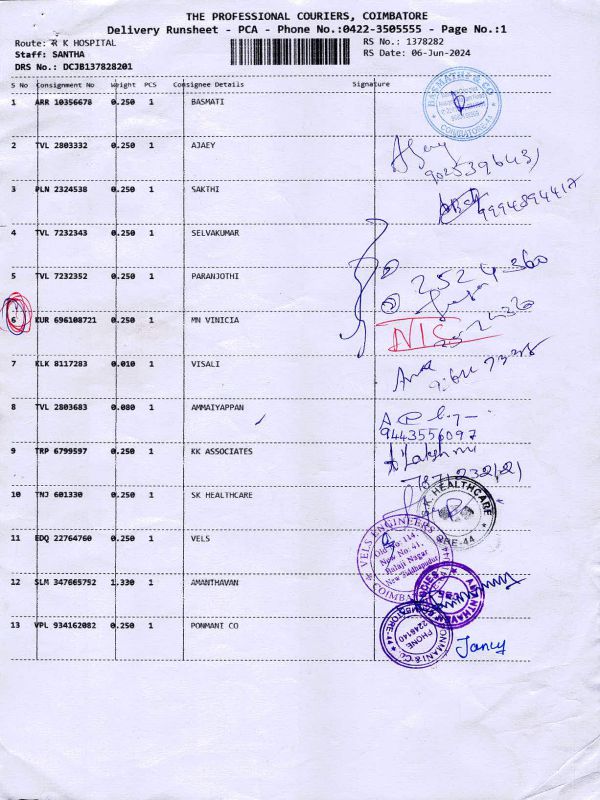 THE PROFESSIONAL COURIERS, COIMBATORE
Delivery Runsheet - PCA - Phone No.:0422-3505555 - Page No.:1
Route: R K HOSPITAL
RS No.: 1378282
Staff: SANTHA
RS Date: 06-Jun-2024
DRS No.: DCJB137828201
S No Consignment No Weight PCS Consignee Details Signature
1 ARR 10356678 0.250 1 BASMATI
COIMBATORE-44
2 TVL 2803332 0.250 1 AJAEY
3 PLN 2324538 0.250 1 SAKTHI
9994894417
4 TVL 7232343 0.250 1 SELVAKUMAR
5 TVL 7232352 0.250 1 PARANJOTHI
6 KUR 696108721 0.250 1 MN VINICIA
NIS
7 KLK 8117283 0.010 1 VISALI
8 TVL 2803683 0.080 1 AMMAIYAPPAN
9443556097
9 TRP 6799597 0.250 1 KK ASSOCIATES
Lakshmi
10 TNJ 601330 0.250 1 SK HEALTHCARE
S.K. HEALTHCARE
CBE-44
11 EDQ 22764760 0.250 1 VELS
VELS ENGINEERS
Old No: 114,
New No: 41,
Balaji Nagar
New Siddhapudur
12 SLM 347665752 1.330 1 AMANTHAVAN
AMANTHAVAN AGENCIES
13 VPL 934162082 0.250 1 PONMANI CO
PONMANI & CO.
PHONE
2246140
Jancy